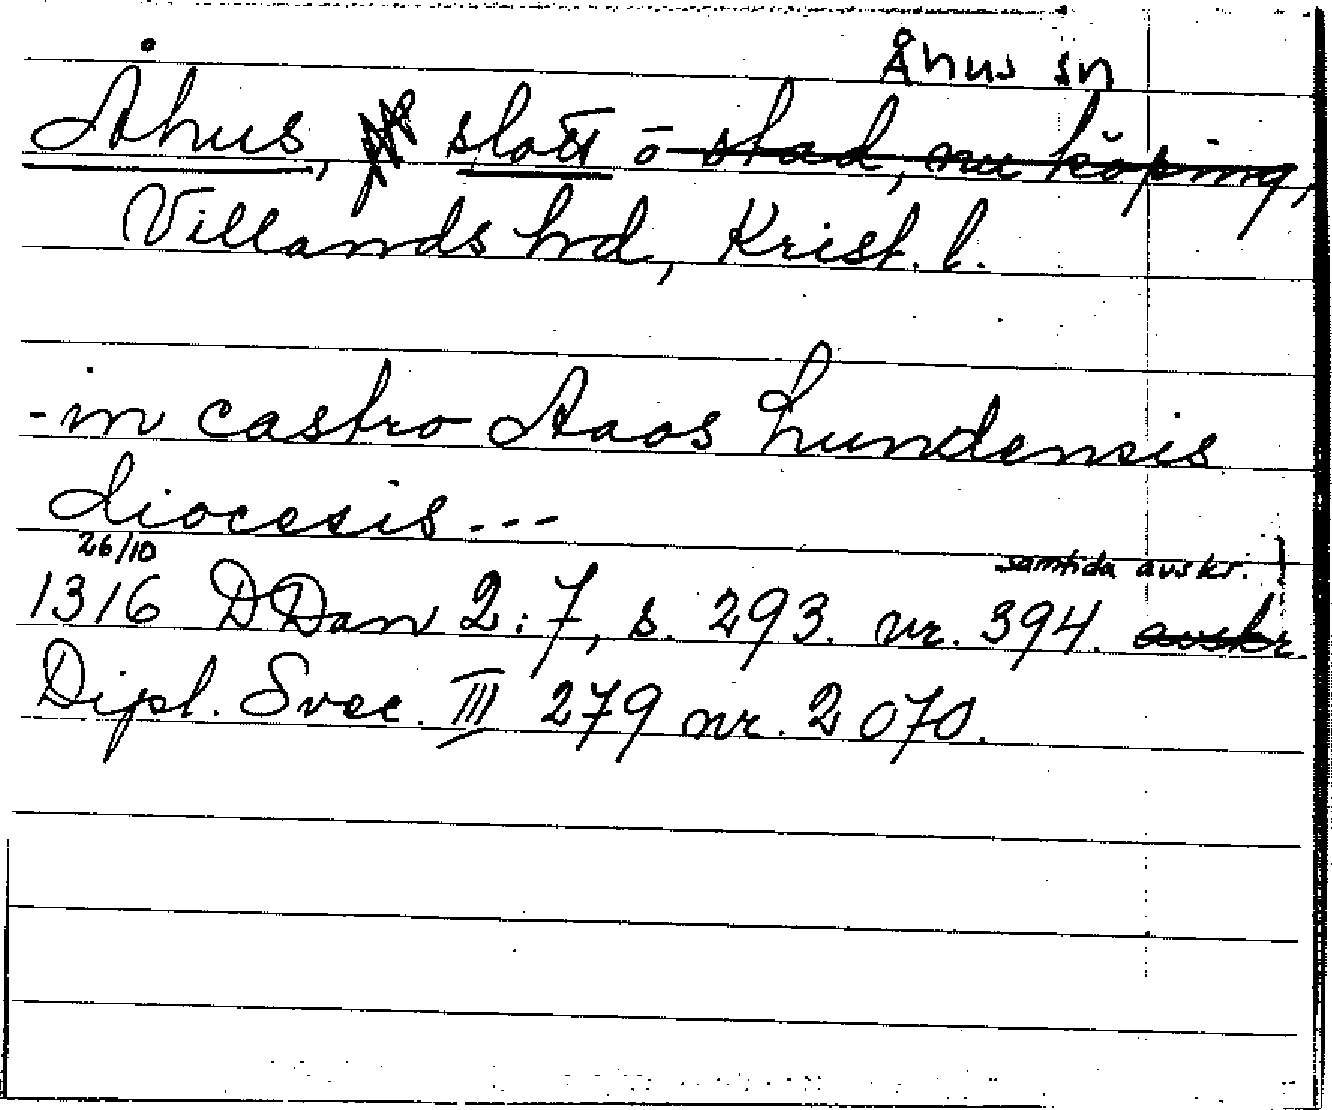 Åhus sn
Åhus, slott o stad, nu köping,
Villands hd, Krist. l.
- in castro Aaos Lundensis
diocesis ---
26/10 samtida avskr.
1316 DDan 2:7, s. 293. nr. 394. avskr.
Dipl. Svec. III 279 nr. 2070.